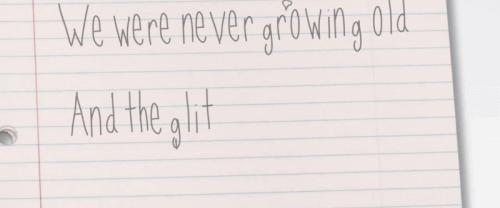 We were never growing old
And the glit